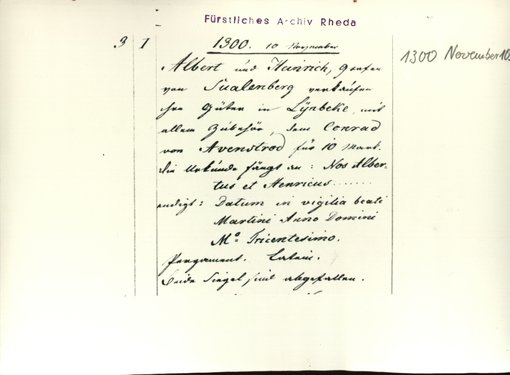 Fürstliches Archiv Rheda
3 I 1300. 10 November
1300 November 10
Albert und Heinrich, Grafen
von Sualenberg verkaufen
ihre Güter in Lynbeke, mit
allem Zubehör, dem Conrad
von Avenstrod für 10 Mark.
die Urkunde fängt an: Nos Alber-
tus et Henricus........
endigt: Datum in vigilia beati
Martini Anno Domini
M° Tricentesimo.
Pergament. Latein.
beide Siegel sind abgefallen.